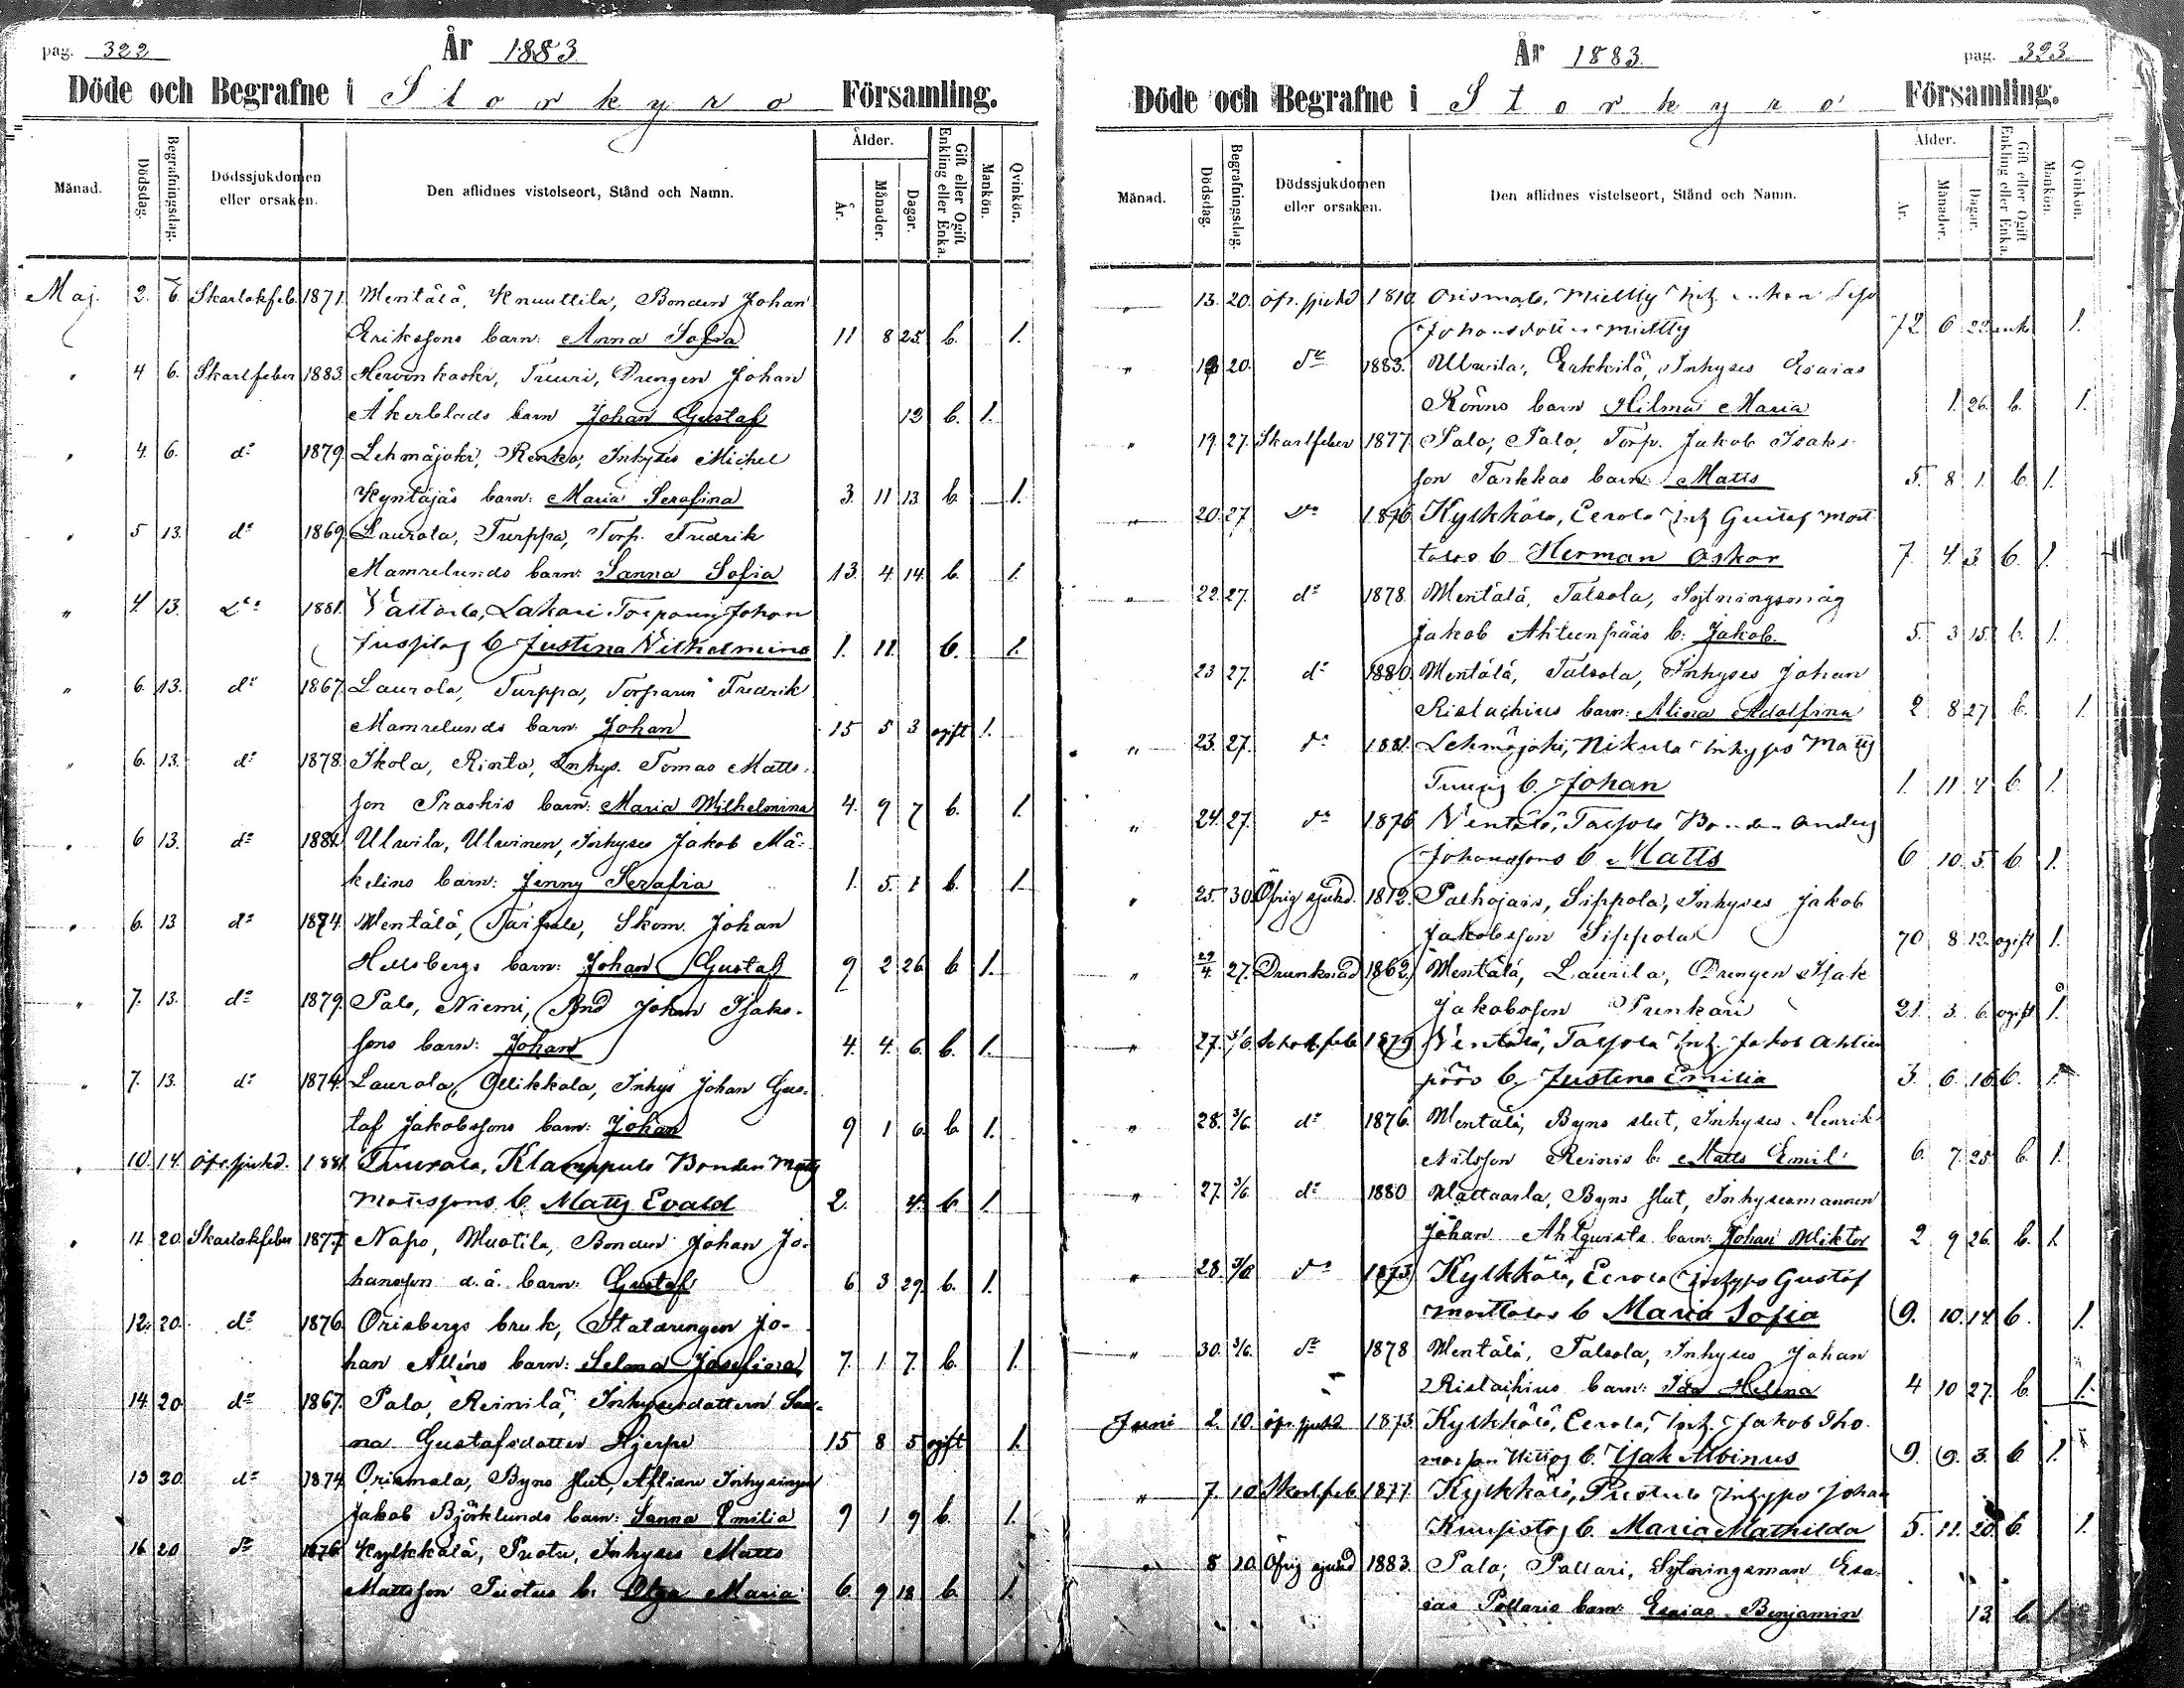 pag. 322
År 1883.
Döde och Begrafne i Storkyro Församling.
Månad.
Dödsdag.
Begrafningsdag.
Dödssjukdomen eller orsaken.
Den aflidnes vistelseort, Stånd och Namn.
Ålder.
År.
Månader.
Dagar.
Gift eller Ogift Enkling eller Enka.
Mankön.
Qvinkön.
Maj. 2. 6. Skarlakfeb. 1871. Wentälä, Knuuttila, Bonden Johan
Erikssons barn: Anna Sofia 11 8 25. b. 1.
" 4 6. Skarlfeber 1883. Hevonkoski, Tuuri, Drengen Johan
Åkerblads barn Johan Gustaf 12 b. 1.
" 4. 6. d:o 1879. Lehmäjoki, Renko, Inhyses Michel
Kyntäjäs barn: Maria Serafina 3. 11 13. b 1.
" 5 13. d:o 1869. Laurola, Turppa, Torp. Fredrik
Mamrelunds barn: Sanna Sofia 13. 4. 14. b. 1.
" 4. 13. D:o 1881. Lakari Torparen Johan
b Justina Wilhelmina 1. 11. b. 1.
" 6. 13. d:o 1867. Laurola, Turppa, Torparen Fredrik
Mamrelunds barn: Johan 15 5 3 ogift 1.
" 6. 13. d:o 1878. Ikola, Rinta, Inhys. Tomas Matts-
son Praskis barn: Maria Wilhelmina 4. 9 7 b. 1.
" 6 13. d:o 1881. Ulwila, Ulwinen, Inhyses Jakob Mä-
kelins barn: Jenny Serafia 1. 5. 1 b. 1
" 6. 13 d:o 1874. Wentälä, Taipale, Skom. Johan
Hellsbergs barn: Johan Gustaf 9 2 26. b 1.
" 7. 13. d:o 1879. Palo, Niemi, Bnd Johan Isaks-
sons barn: Johan 4. 4. 6. b. 1.
" 7. 13. d:o 1874. Laurola, Ollikkala, Inhys Johan Gus-
taf Jakobssons barn: Johan 9 1 6. b. 1.
" 10. 14. öfr. sjukd. 1881. Tuurala, Klamppula Bonden Matts
Mattssons b. Matts Evald 2. 4. b. 1.
" 11. 20. Skarlakfeber 1877 Napo, Muotila, Bonden Johan Jo-
hansson d.ä. barn: Gustaf 6 3 29. b. 1.
12. 20. d:o 1876. Orisbergs bruk, Statdrengen Jo-
han Alléns barn: Selma Josefiina 7. 1 7. b. 1.
14. 20 d:o 1867. Palo, Reinilä, Inhysesdottern San-
na Gustafsdotter Hjerpe 15 8 5 ogift 1.
13 30. d:o 1874 Orismala, Byns slut, Aflidne Inhysingen
Jakob Björklunds barn: Sanna Emilia 9 1 9 b. 1.
16 20 d:o 1876 Kylkkälä, Puotu, Inhyses Matts
Mattsson Puotus b: Olga Maria 6. 9 18 b. 1.
År 1883.
pag. 323.
Döde och Begrafne i Storkyro Församling.
Månad.
Dödsdag.
Begrafningsdag.
Dödssjukdomen eller orsaken.
Den aflidnes vistelseort, Stånd och Namn.
Ålder.
År.
Månader.
Dagar.
Gift eller Ogift Enkling eller Enka.
Mankön.
Qvinkön.
" 13. 20. öfr. sjukd 1810. Orismala, Inh. enkan
Johansdotter 72 6 enka 1.
" 20. d:o 1883. Ulwila, Erkkilä, Inhyses Esaias
Rönns barn Hilma Maria 1. 26. b. 1.
" 19. 27. Skarlfeber 1877. Palo, Palo, Torp. Jakob Isaks-
son Tarkkas barn: Matts 5. 8 1. b. 1.
" 20. 27 D:o 1876. Kylkkälä, Eerola Inh Gustaf Mart
talas b Herman Oskar 7 4. 3 b. 1.
" 22. 27. d:o 1878. Wentälä, Talsola, Sytningsmåg
Jakob Ahteenpääs b: Jakob. 5. 3 15. b. 1.
23 27. d:o 1880. Wentälä, Talsola, Inhyses Johan
barn: Alina Adolfina 2 8 27 b. 1.
" 23. 27. d:o 1881. Lehmäjoki, Nikula Inhyses Matts
b. Johan 1. 11 4 b. 1.
" 24. 27. d:o 1876 Bonden Anders
Johanssons b Matts 6 10. 5. b 1.
" 25. 30. Öfrig sjukd. 1812. Palhojais, Sippola, Inhyses Jakob
Jakobsson Sippola 70 8 12. ogift 1.
" 29/4. 27. Drunknad 1862. Wentälä, Laurila, Drengen Isak
Jakobsson Punkari 21. 3 6. ogift 1.
" 27. 3/6. 1879 Inh. Jakob Ahteen
pääs b. Justina Emilia 3. 6. 16 b. 1.
" 28. 3/6. d:o 1876. Wentälä, Byns slut, Inhyses Henrik
Nilsson Reinis b: Matts Emil 6. 7. 25 b. 1.
" 27. 3/6. d:o 1880 Wallaarla, Byns slut, Inhysesmannen
Johan Ahlqwists barn: Johan Wiktor 2 9 26. b. 1.
" 28. 3/6 d:o 1873. Kylkkälä, Eerola Inhyses Gustaf
Marttalas b Maria Sofia 9. 10. 14 b. 1.
" 30. 3/6. d:o 1878 Wentälä, Talsola, Inhyses Johan
barn: Ida Helena 4 10 27. b. 1.
Juni 2. 10. öfr. sjukd 1873. Kylkkälä, Eerola, Inh. Jakob Tho-
masson b. Isak Albinus 9. 9. 3. b 1.
" 7. 10 Skarl.feb 1877 Kylkkälä, Inhyses Johan
b. Maria Mathilda 5. 11. 20. b. 1.
" 8 10. Öfrig sjukd 1883. Palo, Pallari, Sytningsman Esa-
ias Pallaris barn: Esaias Benjamin 13 b. 1.